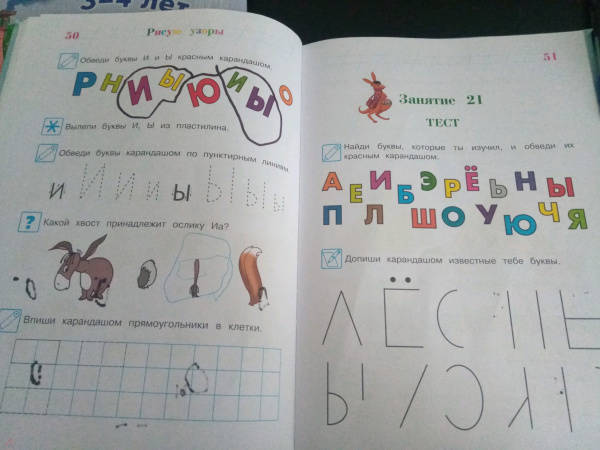 3-4 лет
50 Рисую узоры
Обведи буквы И и Ы красным карандашом.
Р Н И Ы Ю И Ы О
Вылепи буквы И, Ы из пластилина.
Обведи буквы карандашом по пунктирным линиям.
И И И и и Ы Ы Ы ы ы
? Какой хвост принадлежит ослику Иа?
Впиши карандашом прямоугольники в клетки.
51
Занятие 21
ТЕСТ
Найди буквы, которые ты изучил, и обведи их
красным карандашом.
А Е И Б Э Р Ё Ь Н Ы
П Л Ш О У Ю Ч Я
Допиши карандашом известные тебе буквы.